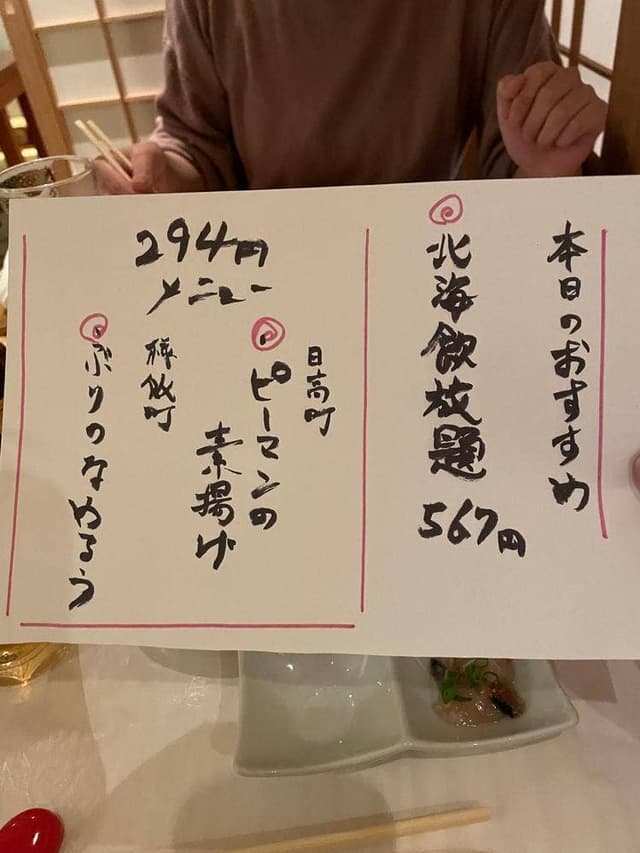 本日のおすすめ
北海飲放題
567円
294円
メニュー
日高町
ピーマンの
素揚げ
様似町
ぶりのなめろう